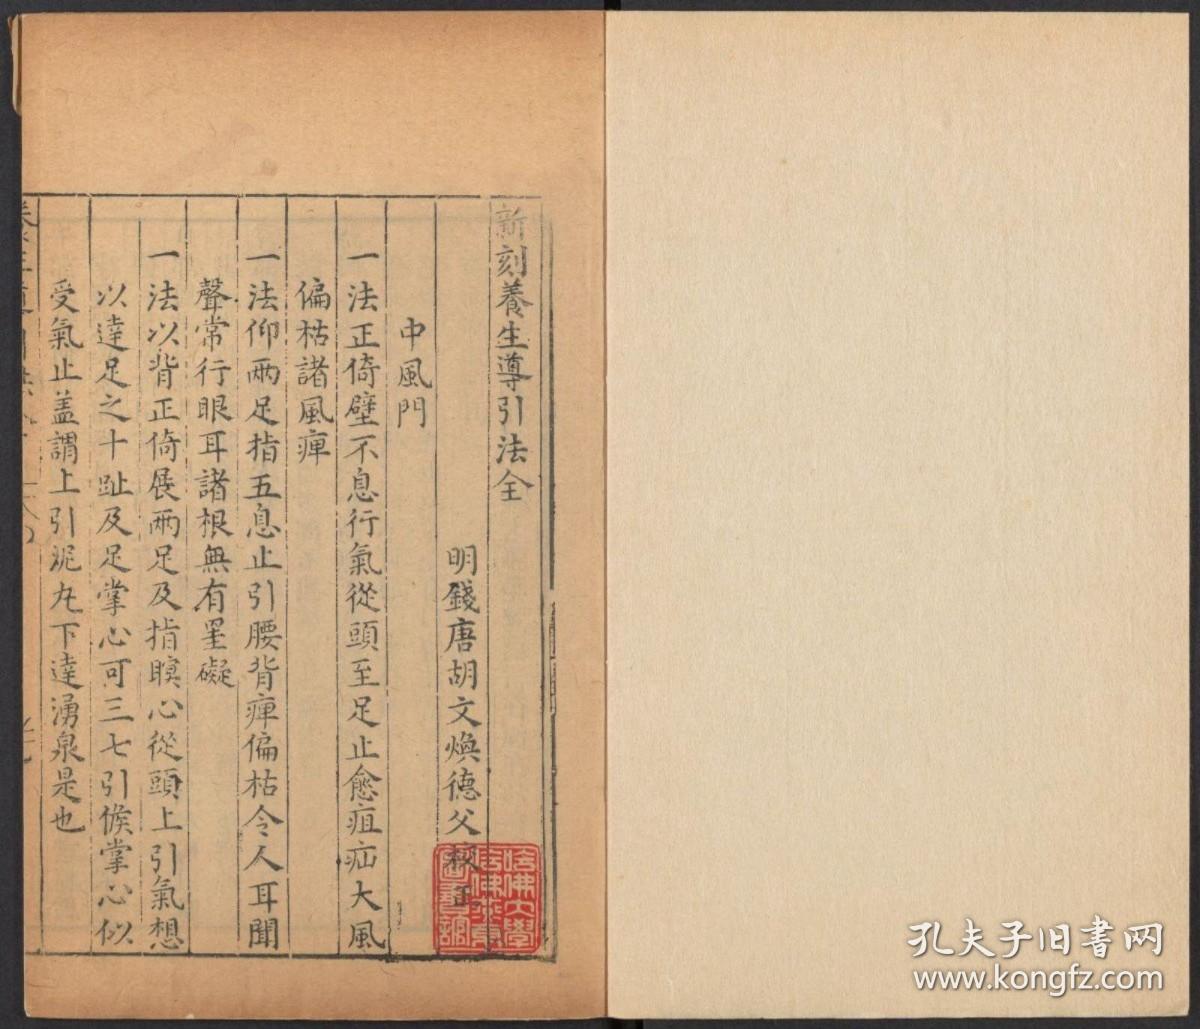 新刻養生導引法全
明錢唐胡文煥德父校正
中風門
一法正倚壁不息行氣從頭至足止愈疽疝大風
偏枯諸風痺
一法仰兩足指五息止引腰背痺偏枯令人耳聞
聲常行眼耳諸根無有罣礙
一法以背正倚展兩足及指瞑心從頭上引氣想
以達足之十趾及足掌心可三七引候掌心似
受氣止盖謂上引泥丸下達湧泉是也
哈佛大學
哈佛燕京
圖書館
孔夫子旧书网
www.kongfz.com